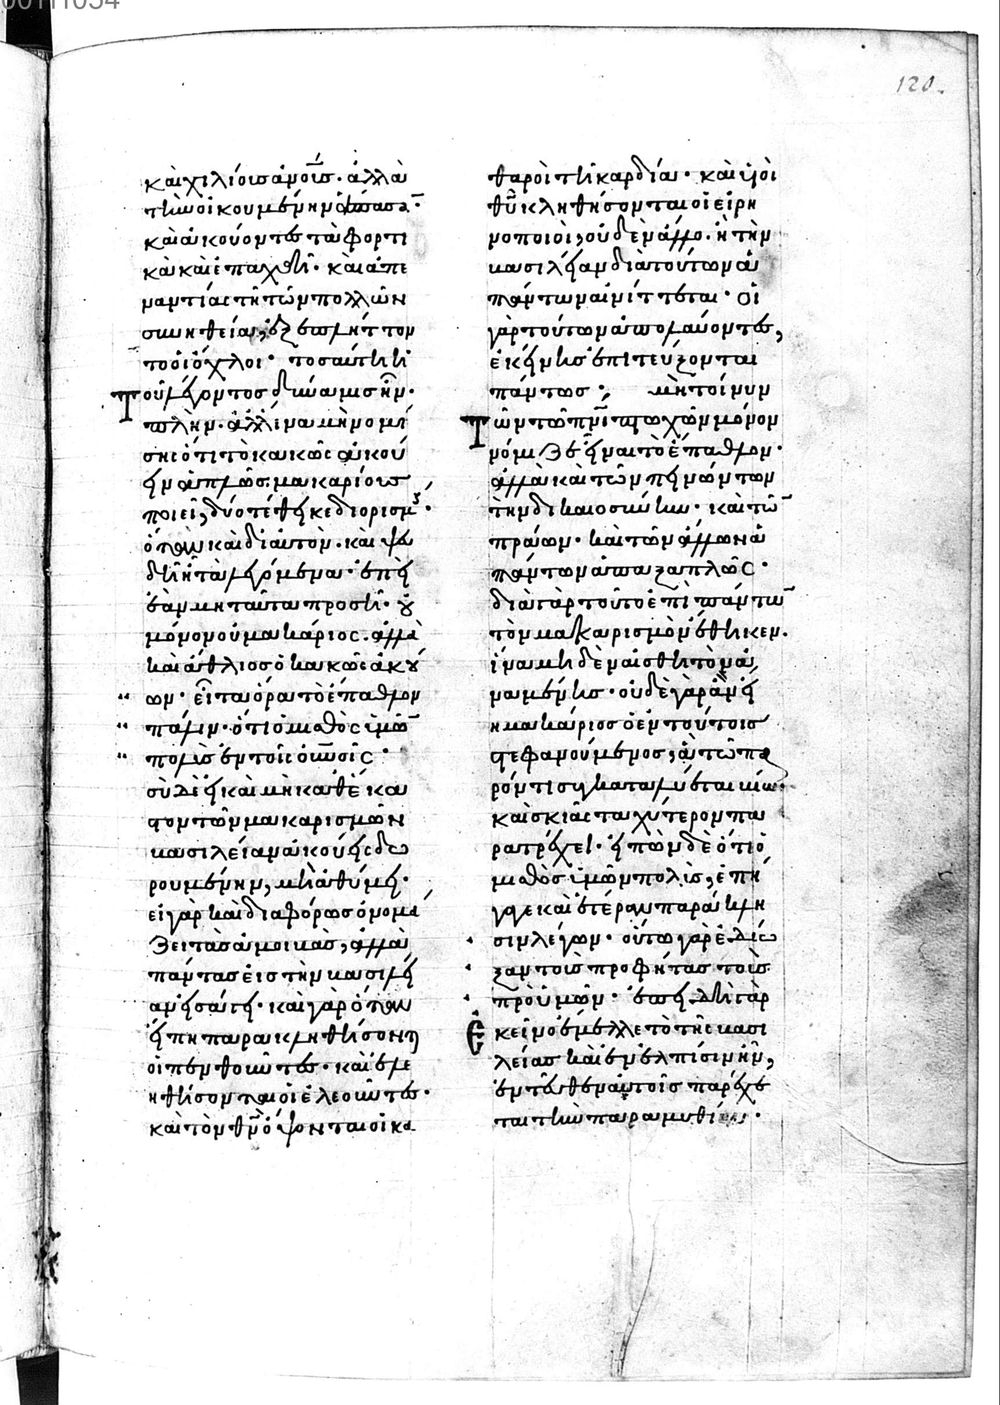 καὶ χιλίοις ἀνοις· ἀλλὰ
τὴν οἰκουμένην ἅπασα̅·
καὶ ἀκούοντες τὰ φορτι
κὰ καὶ ἐπαχθῆ· καὶ ἀπε
ναντίας τῇ τῶν πολλῶν
συνηθείᾳ, ἐξεπλήττον
το οἱ ὄχλοι· τοσαύτη ἡ
Τοῦ λέγοντος δύναμις ἦν·
πλὴν· ἀλλ' ἵνα μὴ νομί
σῃς ὅτι τὸ κακῶς ἀκού
ειν ἁπλῶς μακαρίους
ποιεῖ, δύο τέθεικε διορισμ·
ὅταν καὶ δι' αὐτὸν· καὶ ψευ
δῆ ᾖ τὰ λεγόμενα· ἐπεὶ
ἐὰν μὴ ταῦτα προσῇ· οὐ
μόνον οὐ μακάριος· ἀλλὰ
καὶ ἄθλιος ὁ κακῶς ἀκού
ων· εἶτα ὅρα τὸ ἔπαθλον
πάλιν· ὅτι ὁ μισθὸς ὑμῶ̅
πολὺς ἐν τοῖς οὐνοῖς·
σὺ δὲ εἰ καὶ μὴ καθ' ἕκα
στον τῶν μακαρισμῶν
βασιλείαν ἀκούεις δω
ρουμένην, μὴ ἀθύμει·
εἰ γὰρ καὶ διαφόρως ὀνομά
ζει τὰς ἀμοιβὰς, ἀλλὰ
πάντας εἰς τὴν βασιλεί
αν εἰσάγει· καὶ γὰρ ὅταν
εἴπῃ παρακληθήσονται
οἱ πενθοῦντες· καὶ ἐλε
ηθήσονται οἱ ἐλεοῦντες·
καὶ τὸν θν ὄψονται οἱ κα
θαροὶ τῇ καρδίᾳ· καὶ υἱοὶ
θυ κληθήσονται οἱ εἰρη
νοποιοί, οὐδὲν ἄλλο· ἢ τὴν
βασιλείαν διὰ τούτων ἁ
πάντων αἰνίττεται· οἱ
γὰρ τούτων ἀπολαύοντες,
ἐκείνης ἐπιτεύξονται
πάντως· μὴ τοίνυν
Τῶν τῷ πνι πτωχῶν μόνον
νόμιζε εἶναι τὸ ἔπαθλον·
ἀλλὰ καὶ τῶν πεινώντων
τὴν δικαιοσύνην· καὶ τῶ̅
πράων· καὶ τῶν ἄλλων ἁ
πάντων ἁπαξαπλῶς·
διὰ γὰρ τοῦτο ἐπὶ πάντω̅
τὸν μακαρισμὸν ἔθηκεν·
ἵνα μηδὲν αἰσθητὸν ἀ
ναμένῃς· οὐδὲ γὰρ ἂν εἴ
η μακάριος ὁ ἐν τούτοις
στεφανούμενος, ἃ τῷ πα
ρόντι συγκαταλύεται βίῳ·
καὶ σκιᾶς ταχύτερον πα
ρατρέχει· εἰπὼν δὲ ὅτι ὁ
μισθὸς ὑμῶν πολὺς, ἐπή
γαγε καὶ ἑτέραν παράκλη
σιν λέγων· οὕτω γὰρ ἐδίω
ξαν τοὺς προφήτας τοὺς
πρὸ ὑμῶν· ἐπειδὴ γὰρ
Ἐκεῖνο ἔμελλε τὸ τῆς βασι
λείας καὶ ἐν ἐλπίσιν ἦν,
ἐντεῦθεν αὐτοῖς παρέχε
ται τὴν παραμυθίαν·
120.